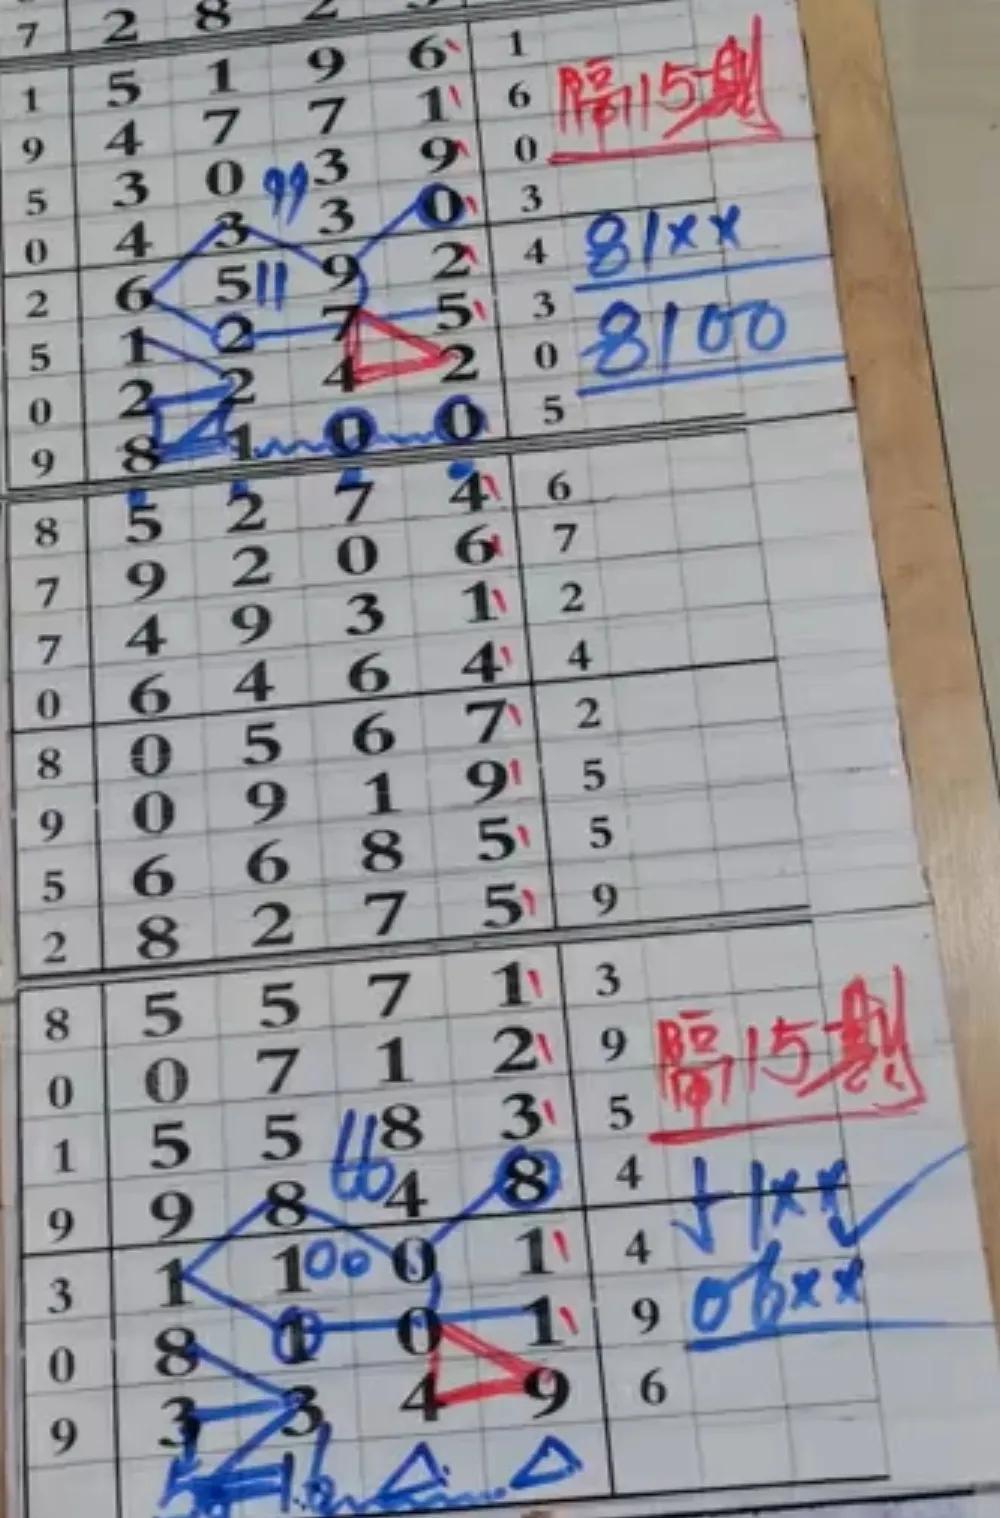 7 2 8 2
1 5 1 9 6 1
9 4 7 7 1 6 隔15期
5 3 0 99 3 9 0
0 4 3 3 0 3
2 6 5 11 9 2 4 81××
5 1 2 7 5 3
0 2 2 4 2 0 8100
9 8 1 0 0 5
8 5 2 7 4 6
7 9 2 0 6 7
7 4 9 3 1 2
0 6 4 6 4 4
8 0 5 6 7 2
9 0 9 1 9 5
5 6 6 8 5 5
2 8 2 7 5 9
8 5 5 7 1 3
0 0 7 1 2 9 隔15期
1 5 5 8 3 5
9 9 8 66 4 8 4
3 1 1 00 0 1 4 1××
0 8 1 0 1 9 06××
9 3 3 4 9 6